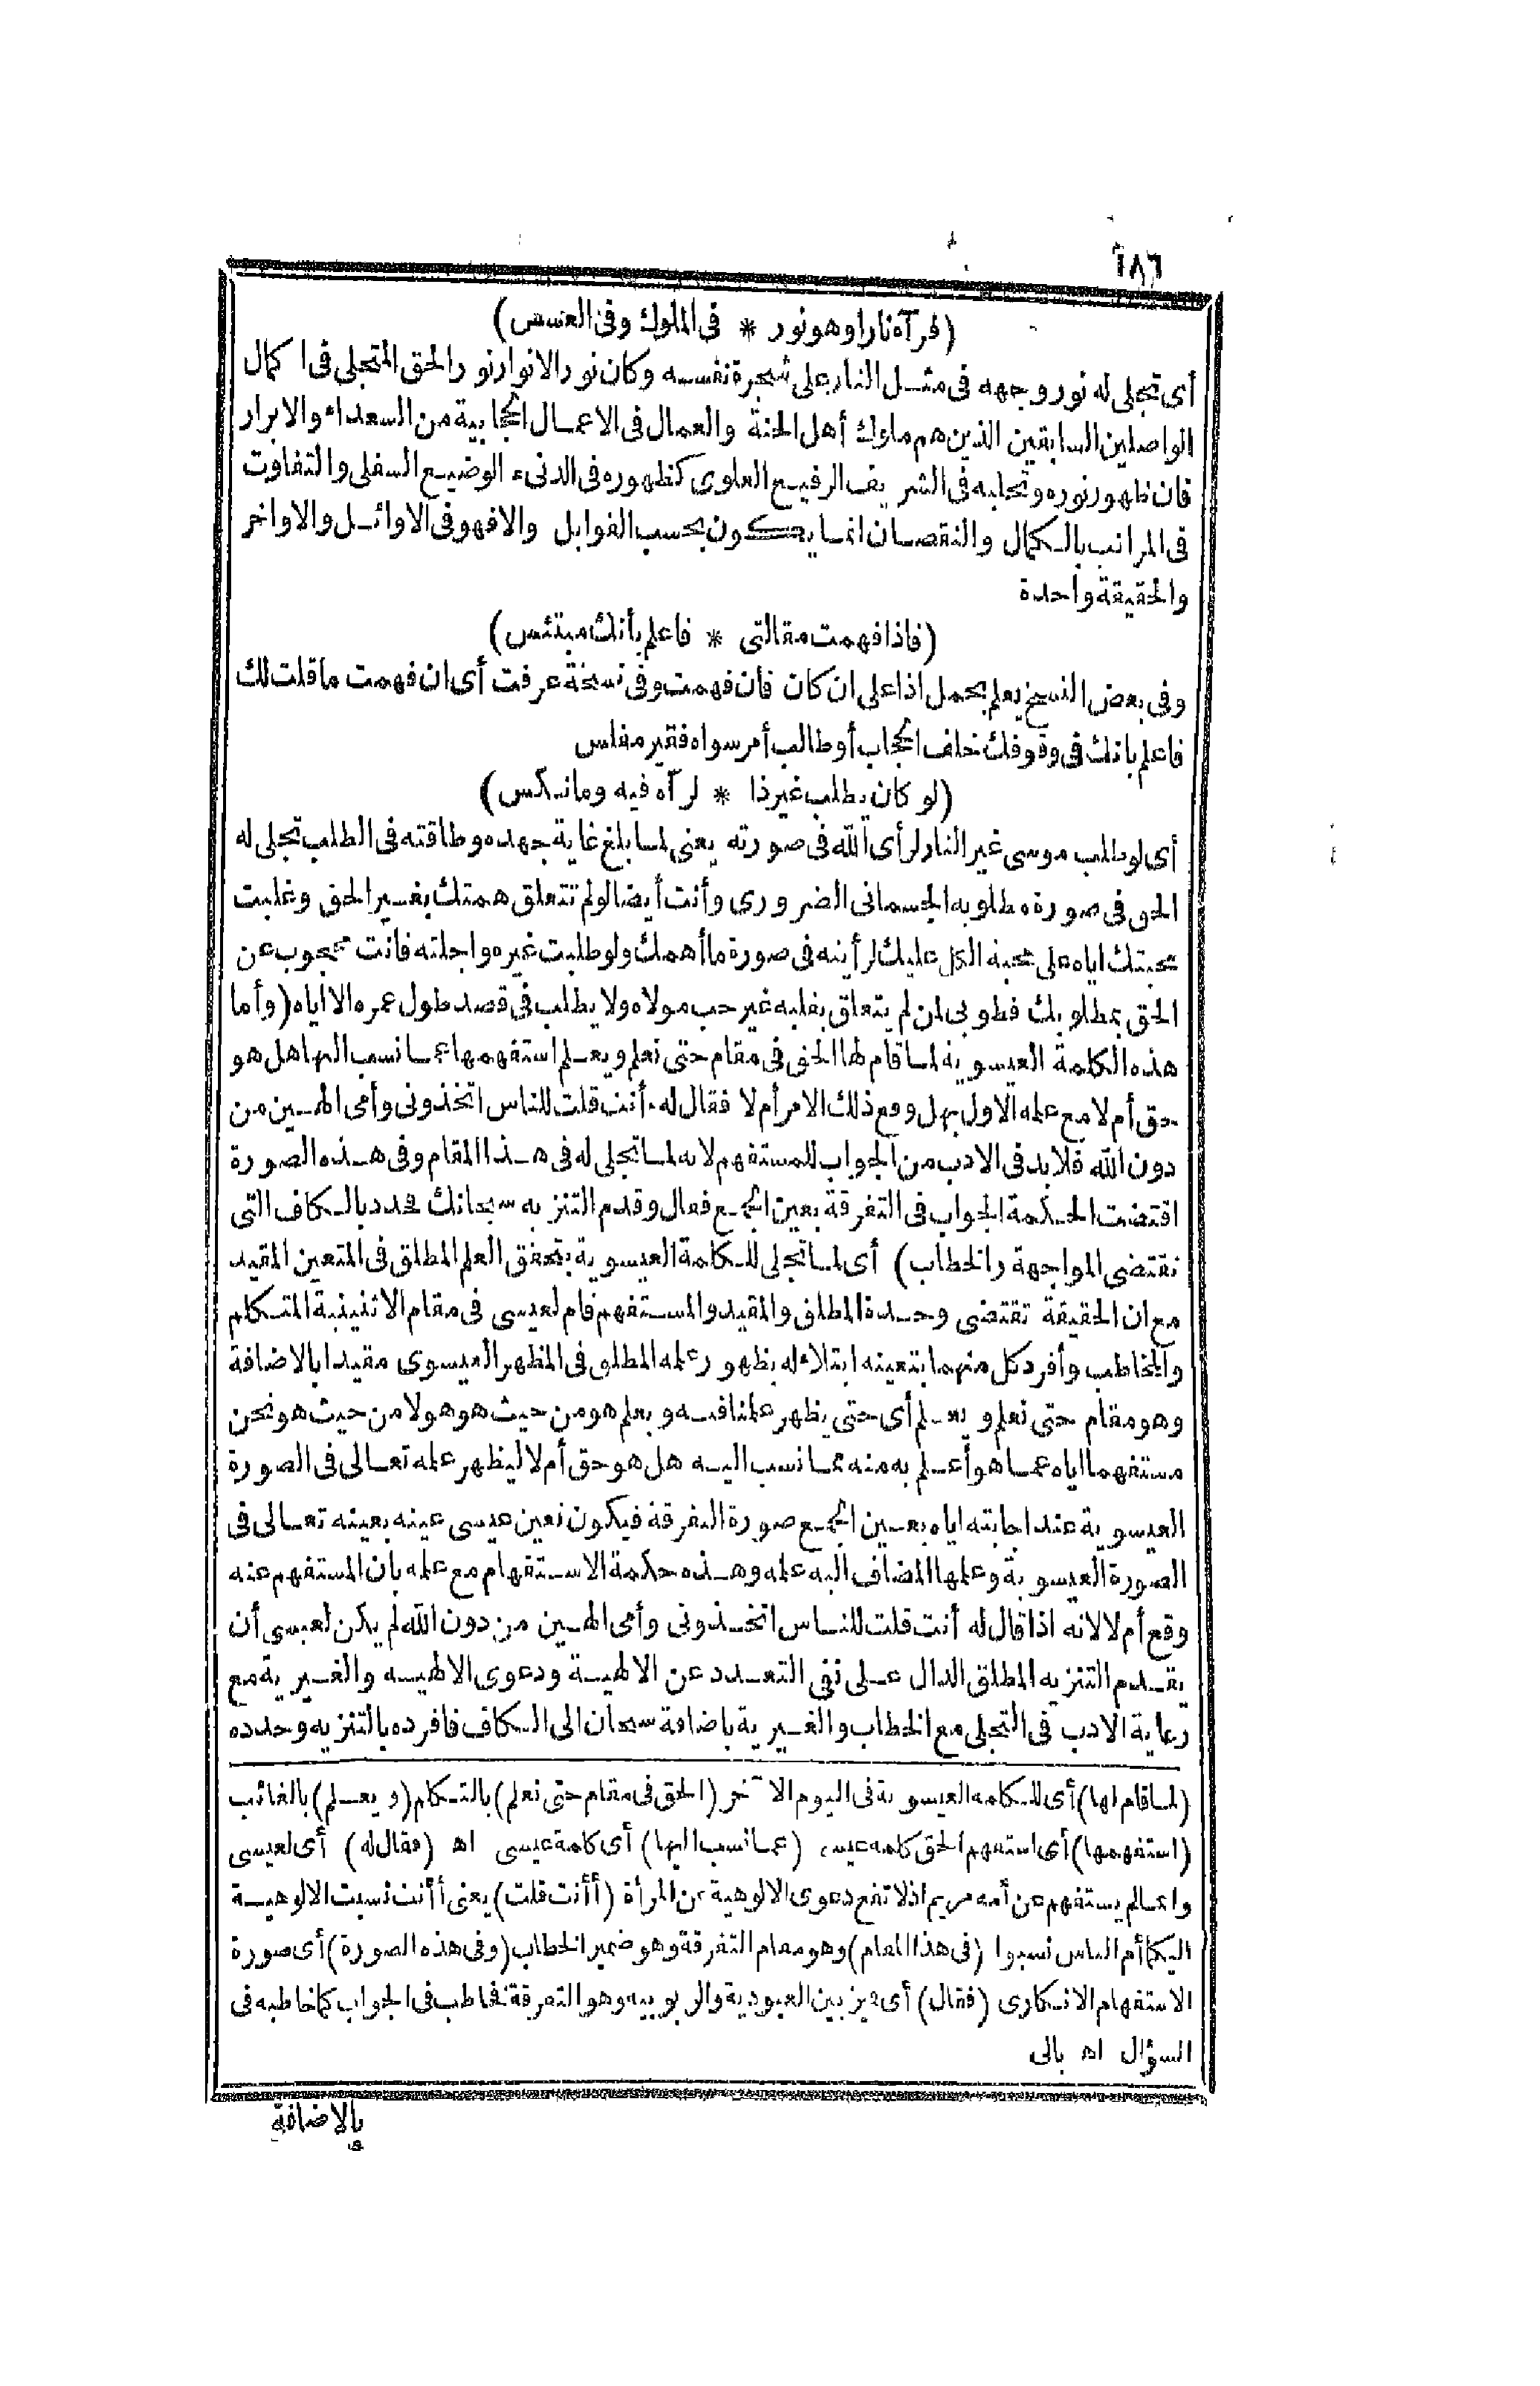 ١٨٦
(فرآه نارا وهو نور * فى الملوك وفى العسس)
أى تجلى له نور وجهه فى مثل النار على شجرة نفسه وكان نور الانوار نور الحق المتجلى فى اكمال
الواصلين السابقين الذين هم ملوك أهل الجنة والعمال فى الاعمال الحجابية من السعداء والابرار
فان ظهور نوره وتجليه فى الشريف الرفيع العلوى كظهوره فى الدنىء الوضيع السفلى والتفاوت
فى المراتب بالكمال والنقصان انما يكون بحسب القوابل والا فهو فى الاوائل والاواخر
والحقيقة واحدة
(فاذا فهمت مقالتى * فاعلم بأنك مبتئس)
وفى بعض النسخ يعلم بحمل اذا على ان كان فان فهمت وفى نسخة عرفت أى ان فهمت ما قلت لك
فاعلم بانك فى وقوفك خلف الحجاب أو طالب أمر سواه فقير مفلس
(لو كان يطلب غير ذا * لرآه فيه وما نكس)
أى لو طلب موسى غير النار لرأى الله فى صورته يعنى لما بلغ غاية جهده وطاقته فى الطلب تجلى له
الحق فى صورة مطلوبه الجسمانى الضرورى وأنت أيضا لو لم تتعلق همتك بغير الحق وغلبت
محبتك اياه على محبة الكل عليك لرأيته فى صورة ما أهمك ولو طلبت غيره واجلته فانت محجوب عن
الحق بمطلوبك فطوبى لمن لم يتعلق بقلبه غير حب مولاه ولا يطلب فى قصد طول عمره الا اياه (وأما
هذه الكلمة العيسوية لما قام لها الحق فى مقام حتى نعلم ويعلم استفهمها عما نسب اليها هل هو
حق أم لا مع علمه الاول بهل وقع ذلك الامر أم لا فقال له ءأنت قلت للناس اتخذونى وأمى الهين من
دون الله فلا بد فى الادب من الجواب للمستفهم لانه لما تجلى له فى هذا المقام وفى هذه الصورة
اقتضت الحكمة الجواب فى التفرقة بعين الجمع فقال وقدم التنزيه سبحانك فحدد بالكاف التى
تقتضى المواجهة والخطاب) أى لما تجلى للكلمة العيسوية بتحقق العلم المطلق فى المتعين المقيد
مع ان الحقيقة تقتضى وحدة المطلق والمقيد والمستفهم قام لعيسى فى مقام الاثنينية المتكلم
والمخاطب وأفرد كل منهما بتعينه ابتلاء له بظهور علمه المطلق فى المظهر العيسوى مقيدا بالاضافة
وهو مقام حتى نعلم ويعلم أى حتى يظهر علمنا فيه ويعلم هو من حيث هو هو لا من حيث هو نحن
مستفهما اياه عما هو أعلم به منه مما نسب اليه هل هو حق أم لا ليظهر علمه تعالى فى الصورة
العيسوية عند اجابته اياه بعين الجمع صورة التفرقة فيكون تعين عيسى عينه بعينه تعالى فى
الصورة العيسوية وعلمها المضاف اليه علمه وهذه حكمة الاستفهام مع علمه بأن المستفهم عنه
وقع أم لا لانه اذا قال له أنت قلت للناس اتخذونى وأمى الهين من دون الله لم يكن لعيسى أن
يقدم التنزيه المطلق الدال على نفى التعدد عن الالهية ودعوى الالهيه والغيرية مع
رعاية الادب فى التجلى مع الخطاب والغيرية باضافة سبحان الى الكاف فافرده بالتنزيه وحدده
(لما قام لها) أى للكلمة العيسوية فى اليوم الآخر (الحق فى مقام حتى نعلم) بالتكلم (ويعلم) بالغائب
(استفهمها) أى استفهم الحق كلمه عيسى (عما نسب اليها) أى كلمة عيسى اه (فقال له) أى لعيسى
وانما لم يستفهم عن أمه مريم اذ لا تقع دعوى الالوهية من المرأة (أأنت قلت) يعنى أأنت نسبت الالوهية
اليكما أم الناس نسبوا (فى هذا المقام) وهو مقام التفرقة وهو ضمير الخطاب (وفى هذه الصورة) أى صورة
الاستفهام الانكارى (فقال) أى ميز بين العبودية والربوبيه وهو التفرقة فخاطب فى الجواب كما خاطبه فى
السؤال اه بالى
بالاضافة